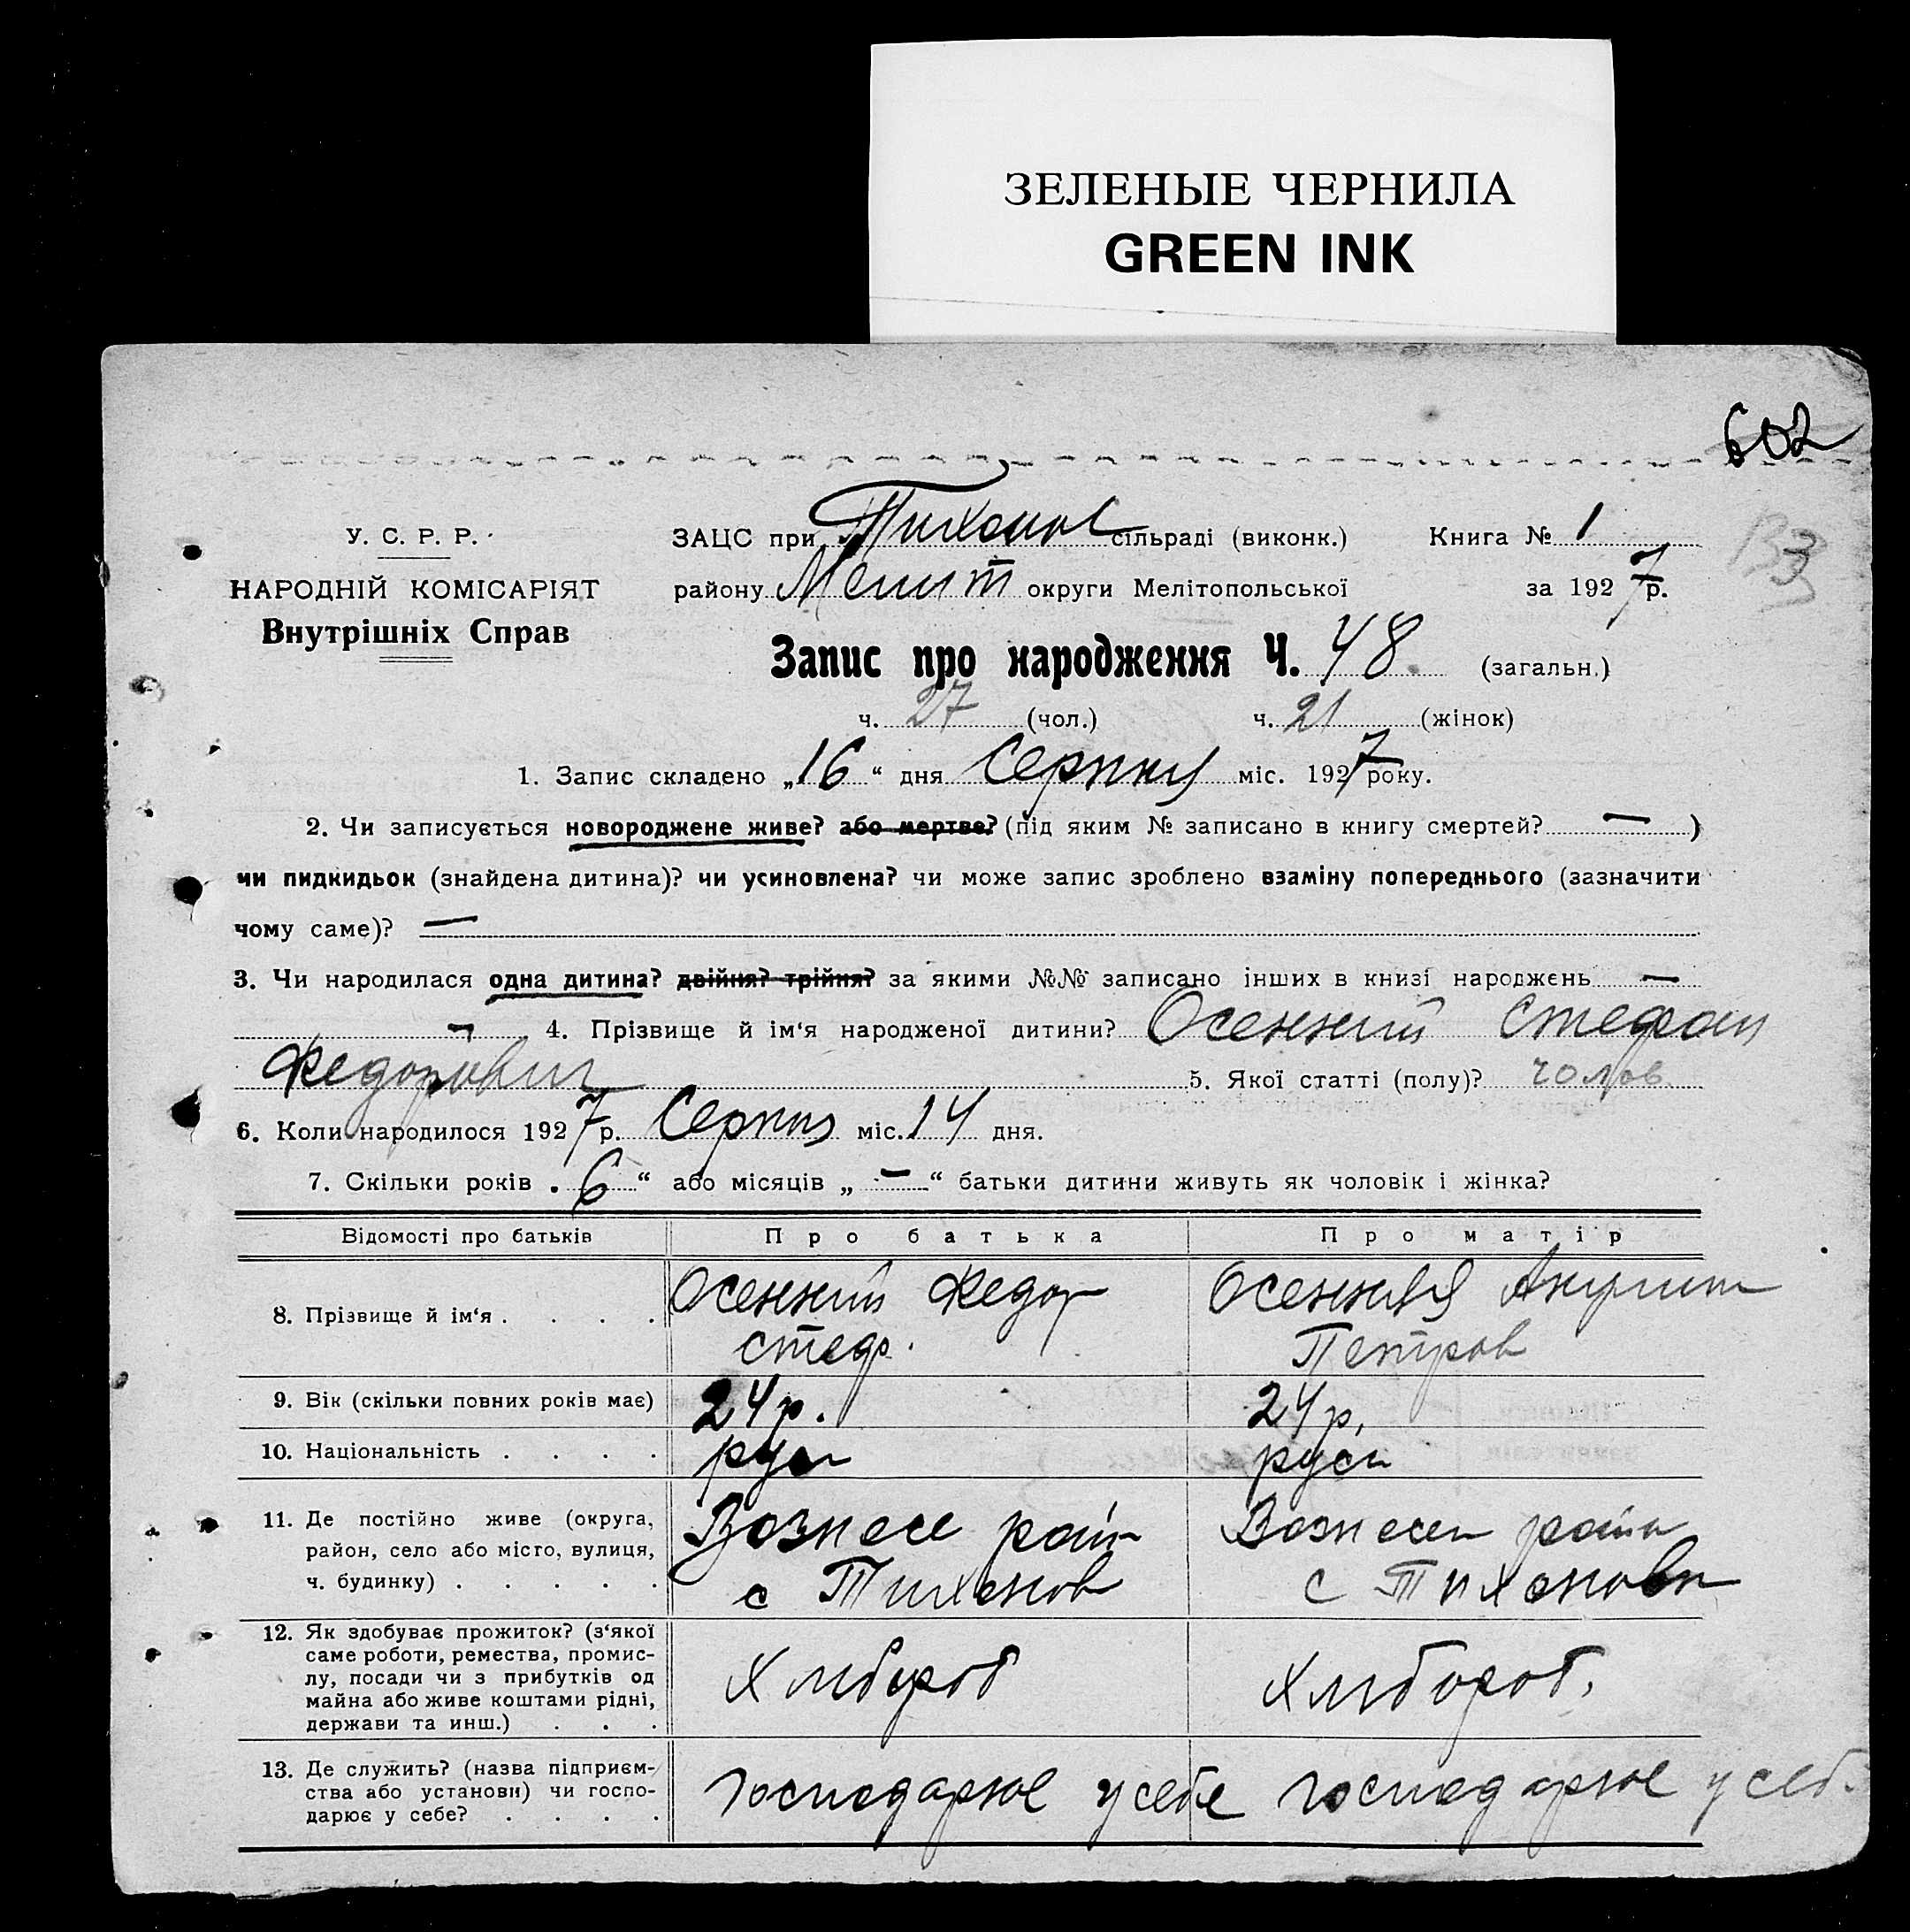 ЗЕЛЕНЫЕ ЧЕРНИЛА
GREEN INK
602
У. С. Р. Р.
НАРОДНІЙ КОМІСАРІЯТ
Внутрішніх Справ
ЗАЦС при Тихонов сільраді (виконк.) Книга № 1
району Меліт округи Мелітопольської за 1927 р.
Запис про народження Ч. 48 (загальн.)
ч. 27 (чол.) ч. 21 (жінок)
1. Запис складено „16“ дня Серпня міс. 1927 року.
2. Чи записується новороджене живе? або мертве? (під яким № записано в книгу смертей? — )
чи пидкидьок (знайдена дитина)? чи усиновлена? чи може запис зроблено взаміну попереднього (зазначити
чому саме)? —
3. Чи народилася одна дитина? двійня? трійня? за якими №№ записано інших в книзі народжень —
— 4. Прізвище й ім‘я народженої дитини? Осенний Стефан
Федорович 5. Якої статті (полу)? чолов.
6. Коли народилося 1927 р. Серпня міс. 14 дня.
7. Скільки років „6“ або місяців „ — “ батьки дитини живуть як чоловік і жінка?
Відомості про батьків Про батька Про матір
8. Прізвище й ім‘я . . . . Осенний Федор Осенняя
стеф. Петров
9. Вік (скільки повних років має) 24 р. 24 р.
10. Національність . . . . руси руси
11. Де постійно живе (округа, район, село або місто, вулиця, ч. будинку) . . . . . Вознесе рай Вознесен район
с Тихонов с Тихоновк
12. Як здобуває прожиток? (з‘якої саме роботи, ремества, промислу, посади чи з прибутків од майна або живе коштами рідні, держави та инш.) . . . Хлібороб Хлібороб.
13. Де служить? (назва підприємства або установи) чи господарює у себе? . . . . господарює у себе господарює у себ.